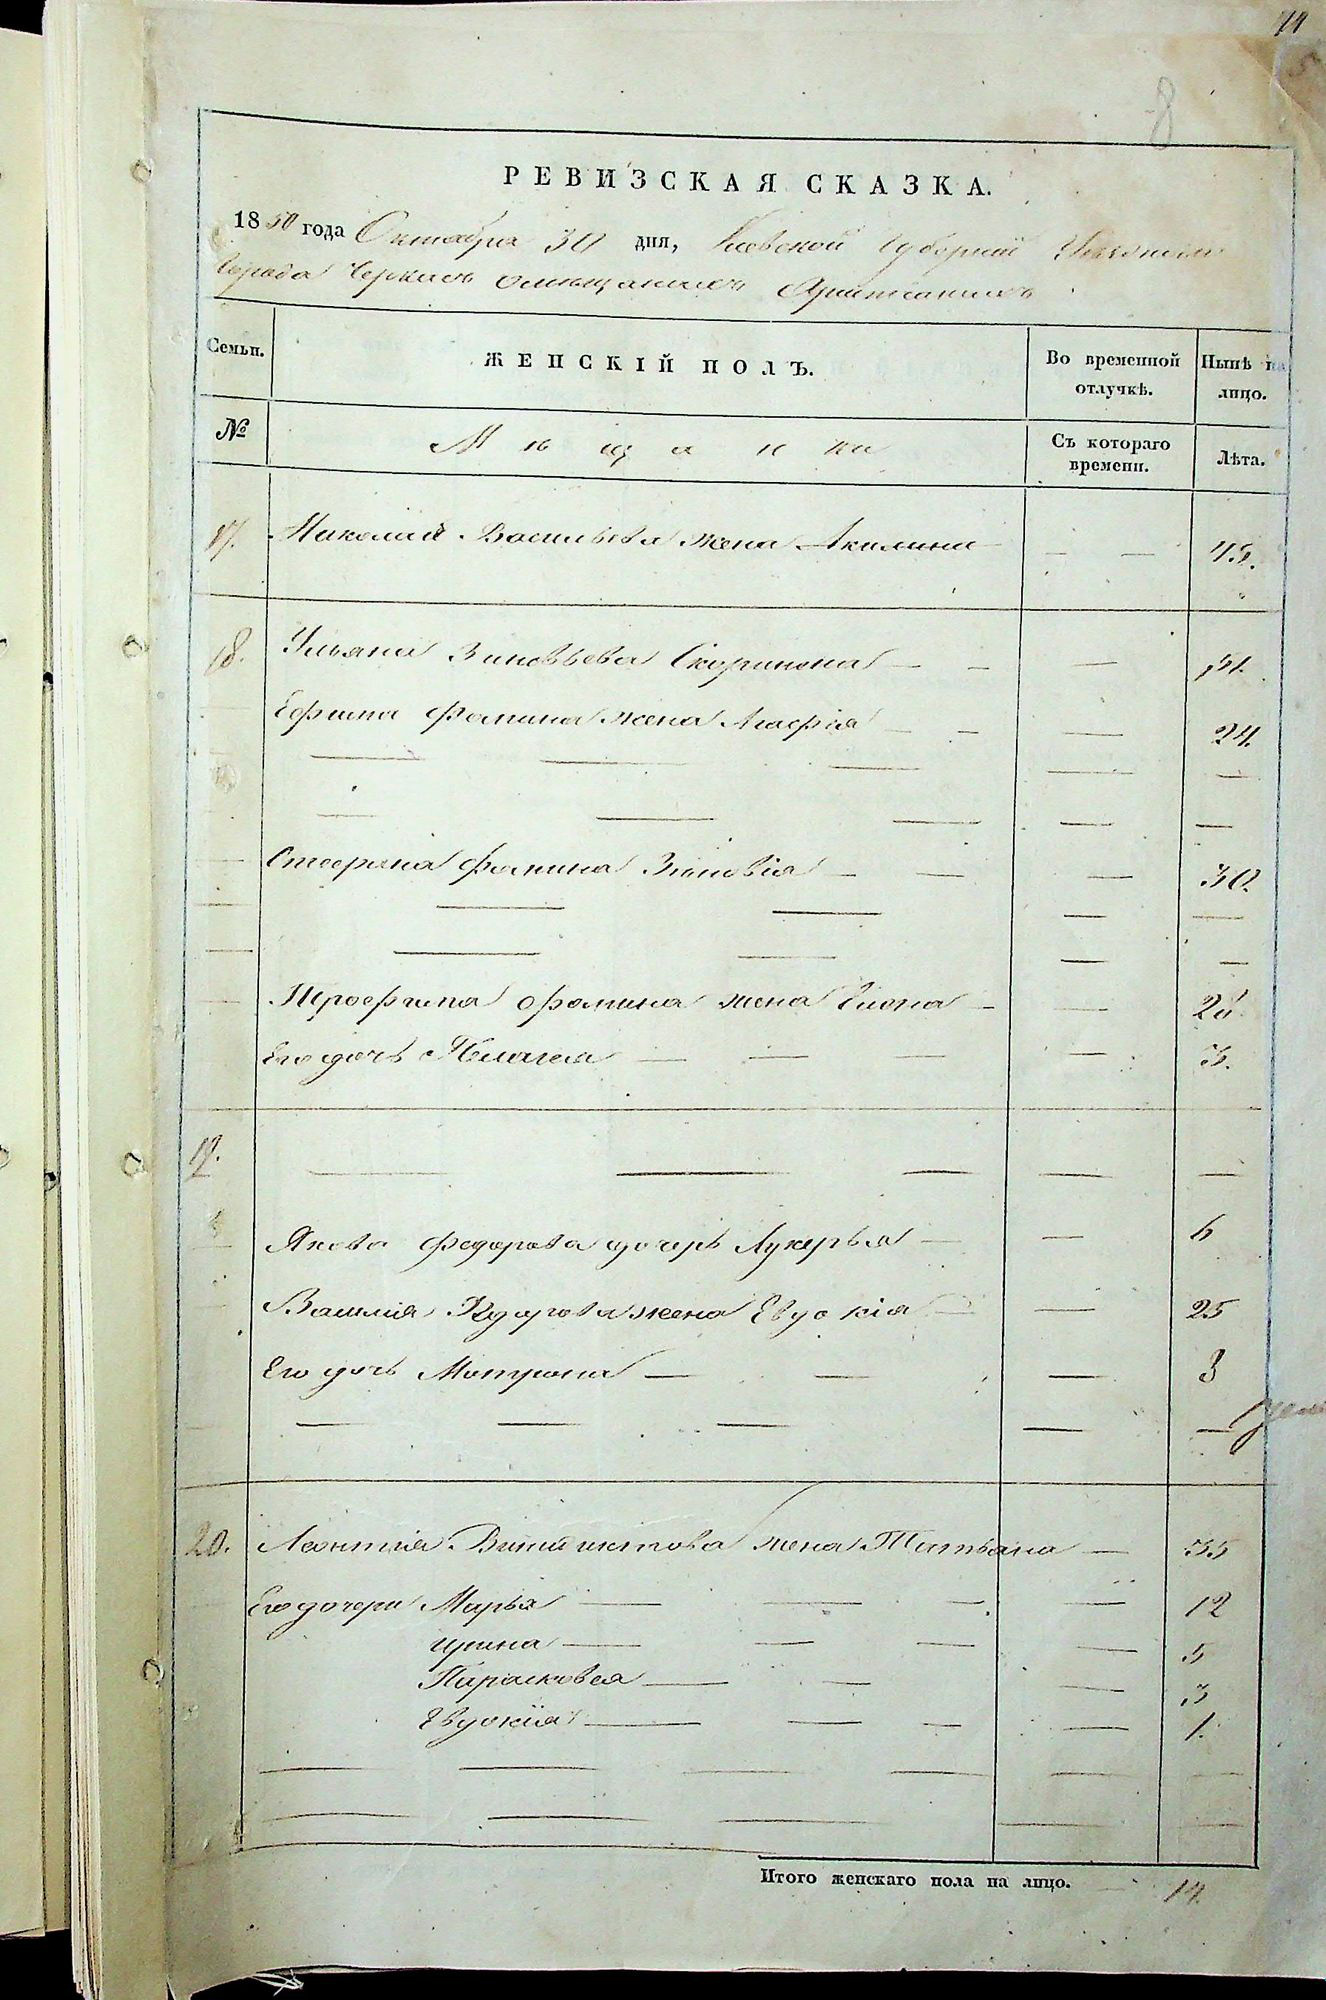 РЕВИЗСКАЯ СКАЗКА.
1850 года Октября 30 дня, Киевской Губернии
Города Черкасъ о мѣщанахъ Христианахъ
Семьи. ЖЕНСКІЙ ПОЛЪ. Во временной отлучкѣ. Нынѣ на лицо.
№ Мѣщанки Съ котораго времени. Лѣта.
17. Николая Васильева жена Акилина — — 45.
18. Ульяна Зиновьева Скорикова — — — 51.
Ефима Фомина жена Агафія — — — 24.
Стефана Фомина Зиновія — — — 30.
Трофима Фомина жена Елена — — 28
Его дочь Пелагея — — — — 3.
19.
Якова Федорова дочерь Лукерья — — 6
Василія Федорова жена Евдокія — — 25
Его дочь Матрона — — — 3
20. Леонтія жена Татьяна — 35
Его дочери Марья — — — — 12
Ирина — — — — 5
Парасковея — — — 3
Евдокія — — — — 1.
Итого женскаго пола на лицо. — 14.